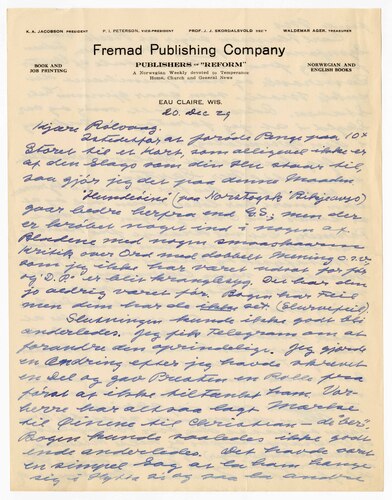 K. A. JACOBSON PRESIDENT P. I. PETERSON, VICE-PRESIDENT PROF. J. J. SKORDALSVOLD SEC'Y WALDEMAR AGER, TREASURER
Fremad Publishing Company
PUBLISHERS OF "REFORM"
BOOK AND
JOB PRINTING
A Norwegian Weekly devoted to Temperance
Home, Church and General News
NORWEGIAN AND
ENGLISH BOOKS
EAU CLAIRE, WIS.
20. Dec 29
Kjære Rölvaag.
Istedetfor at forøde Penge paa 10×
Storet til et Kort som alligevel ikke er
af den Slags som din Hu staar til,
saa gjør jeg det paa denne Maaden.
"Hundeöine" (paa Norskdysk Riksjargo)
gaar bedre herfra end G.S; men der
er kröbet noget ind i nogen af
Bladene med nogen smaaskaaren
kritik over Ord med dobbelt Mening o.s.v.
som jeg ikke har været udsat for før
og "D.P." er blit kranglug. Det har den
jo aldrig været før. Bogen har Feil
men dem har de ikke set
Slutningen kunde ikke godt bli
anderledes. Jeg fik Telegram om at
forandre den oprindelige. Jeg gjorde
en Andring efter jeg havde skrevet
en Del og gav Presten en Rolle
forat at ikke
herre har altsaa lagt Martha
til Pinene til Christian – de "ber".
Bogen kunde saaledes ikke godt
ende anderledes. Det havde været
en simpel Sag at la ham hænge
sig i Hytta si og saa la andre